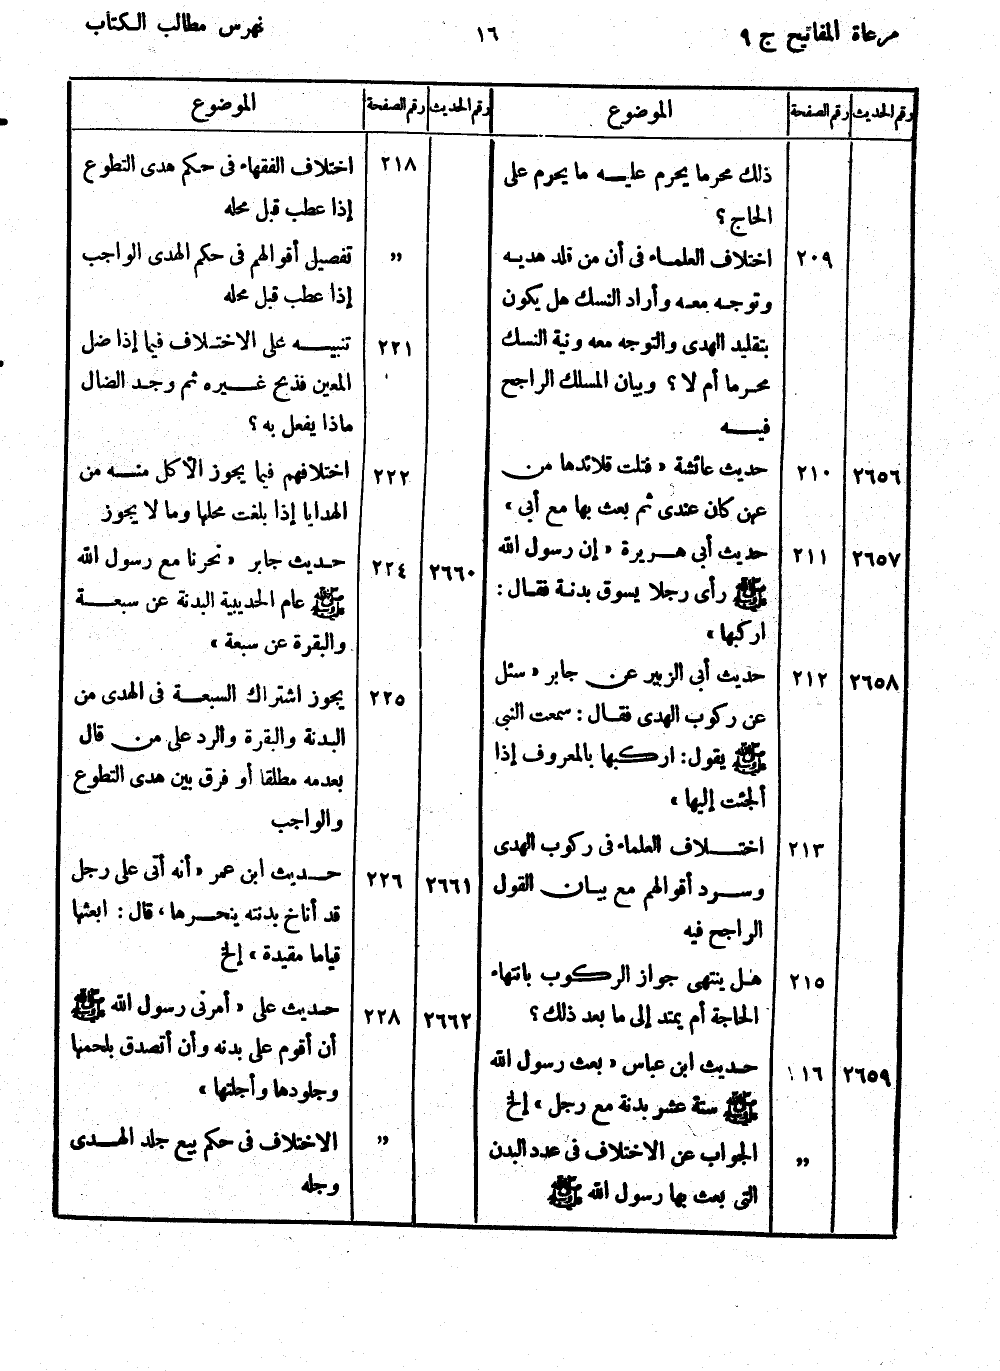 مرعاة المفاتيح ج ٩
١٦
فهرس مطالب الكتاب
رقم الحديث رقم الصفحة الموضوع
ذلك محرما يحرم عليه ما يحرم على
الحاج؟
٢٠٩ اختلاف العلماء فى أن من قلد هديه
وتوجه معه وأراد النسك هل يكون
بتقليد الهدى والتوجه معه ونية النسك
محرما أم لا؟ وبيان المسلك الراجح
فيه
٢٦٥٦ ٢١٠ حديث عائشة «فتلت قلائدها من
عهن كان عندى ثم بعث بها مع أبى»
٢٦٥٧ ٢١١ حديث أبى هريرة «إن رسول الله
ﷺ رأى رجلا يسوق بدنة فقال:
اركبها»
٢٦٥٨ ٢١٢ حديث أبى الزبير عن جابر «سئل
عن ركوب الهدى فقال: سمعت النبى
ﷺ يقول: اركبها بالمعروف إذا
ألجئت إليها»
٢١٣ اختلاف العلماء فى ركوب الهدى
وسرد أقوالهم مع بيان القول
الراجح فيه
٢١٥ هل ينتهى جواز الركوب بانتهاء
الحاجة أم يمتد إلى ما بعد ذلك؟
٢٦٥٩ ١١٦ حديث ابن عباس «بعث رسول الله
ﷺ ستة عشر بدنة مع رجل» إلخ
,, الجواب عن الاختلاف فى عدد البدن
التى بعث بها رسول الله ﷺ
رقم الحديث رقم الصفحة الموضوع
٢١٨ اختلاف الفقهاء فى حكم هدى التطوع
إذا عطب قبل محله
,, تفصيل أقوالهم فى حكم الهدى الواجب
إذا عطب قبل محله
٢٢١ تنبيه على الاختلاف فيما إذا ضل
المعين فذبح غيره ثم وجد الضال
ماذا يفعل به؟
٢٢٢ اختلافهم فيما يجوز الأكل منه من
الهدايا إذا بلغت محلها وما لا يجوز
٢٦٦٠ ٢٢٤ حديث جابر «نحرنا مع رسول الله
ﷺ عام الحديبية البدنة عن سبعة
والبقرة عن سبعة»
٢٢٥ يجوز اشتراك السبعة فى الهدى من
البدنة والبقرة والرد على من قال
بعدمه مطلقا أو فرق بين هدى التطوع
والواجب
٢٦٦١ ٢٢٦ حديث ابن عمر «أنه أتى على رجل
قد أناخ بدنته ينحرها، قال: ابعثها
قياما مقيدة» إلخ
٢٦٦٢ ٢٢٨ حديث على «أمرنى رسول الله ﷺ
أن أقوم على بدنه وأن أتصدق بلحمها
وجلودها وأجلتها»
,, الاختلاف فى حكم بيع جلد الهدى
وجله